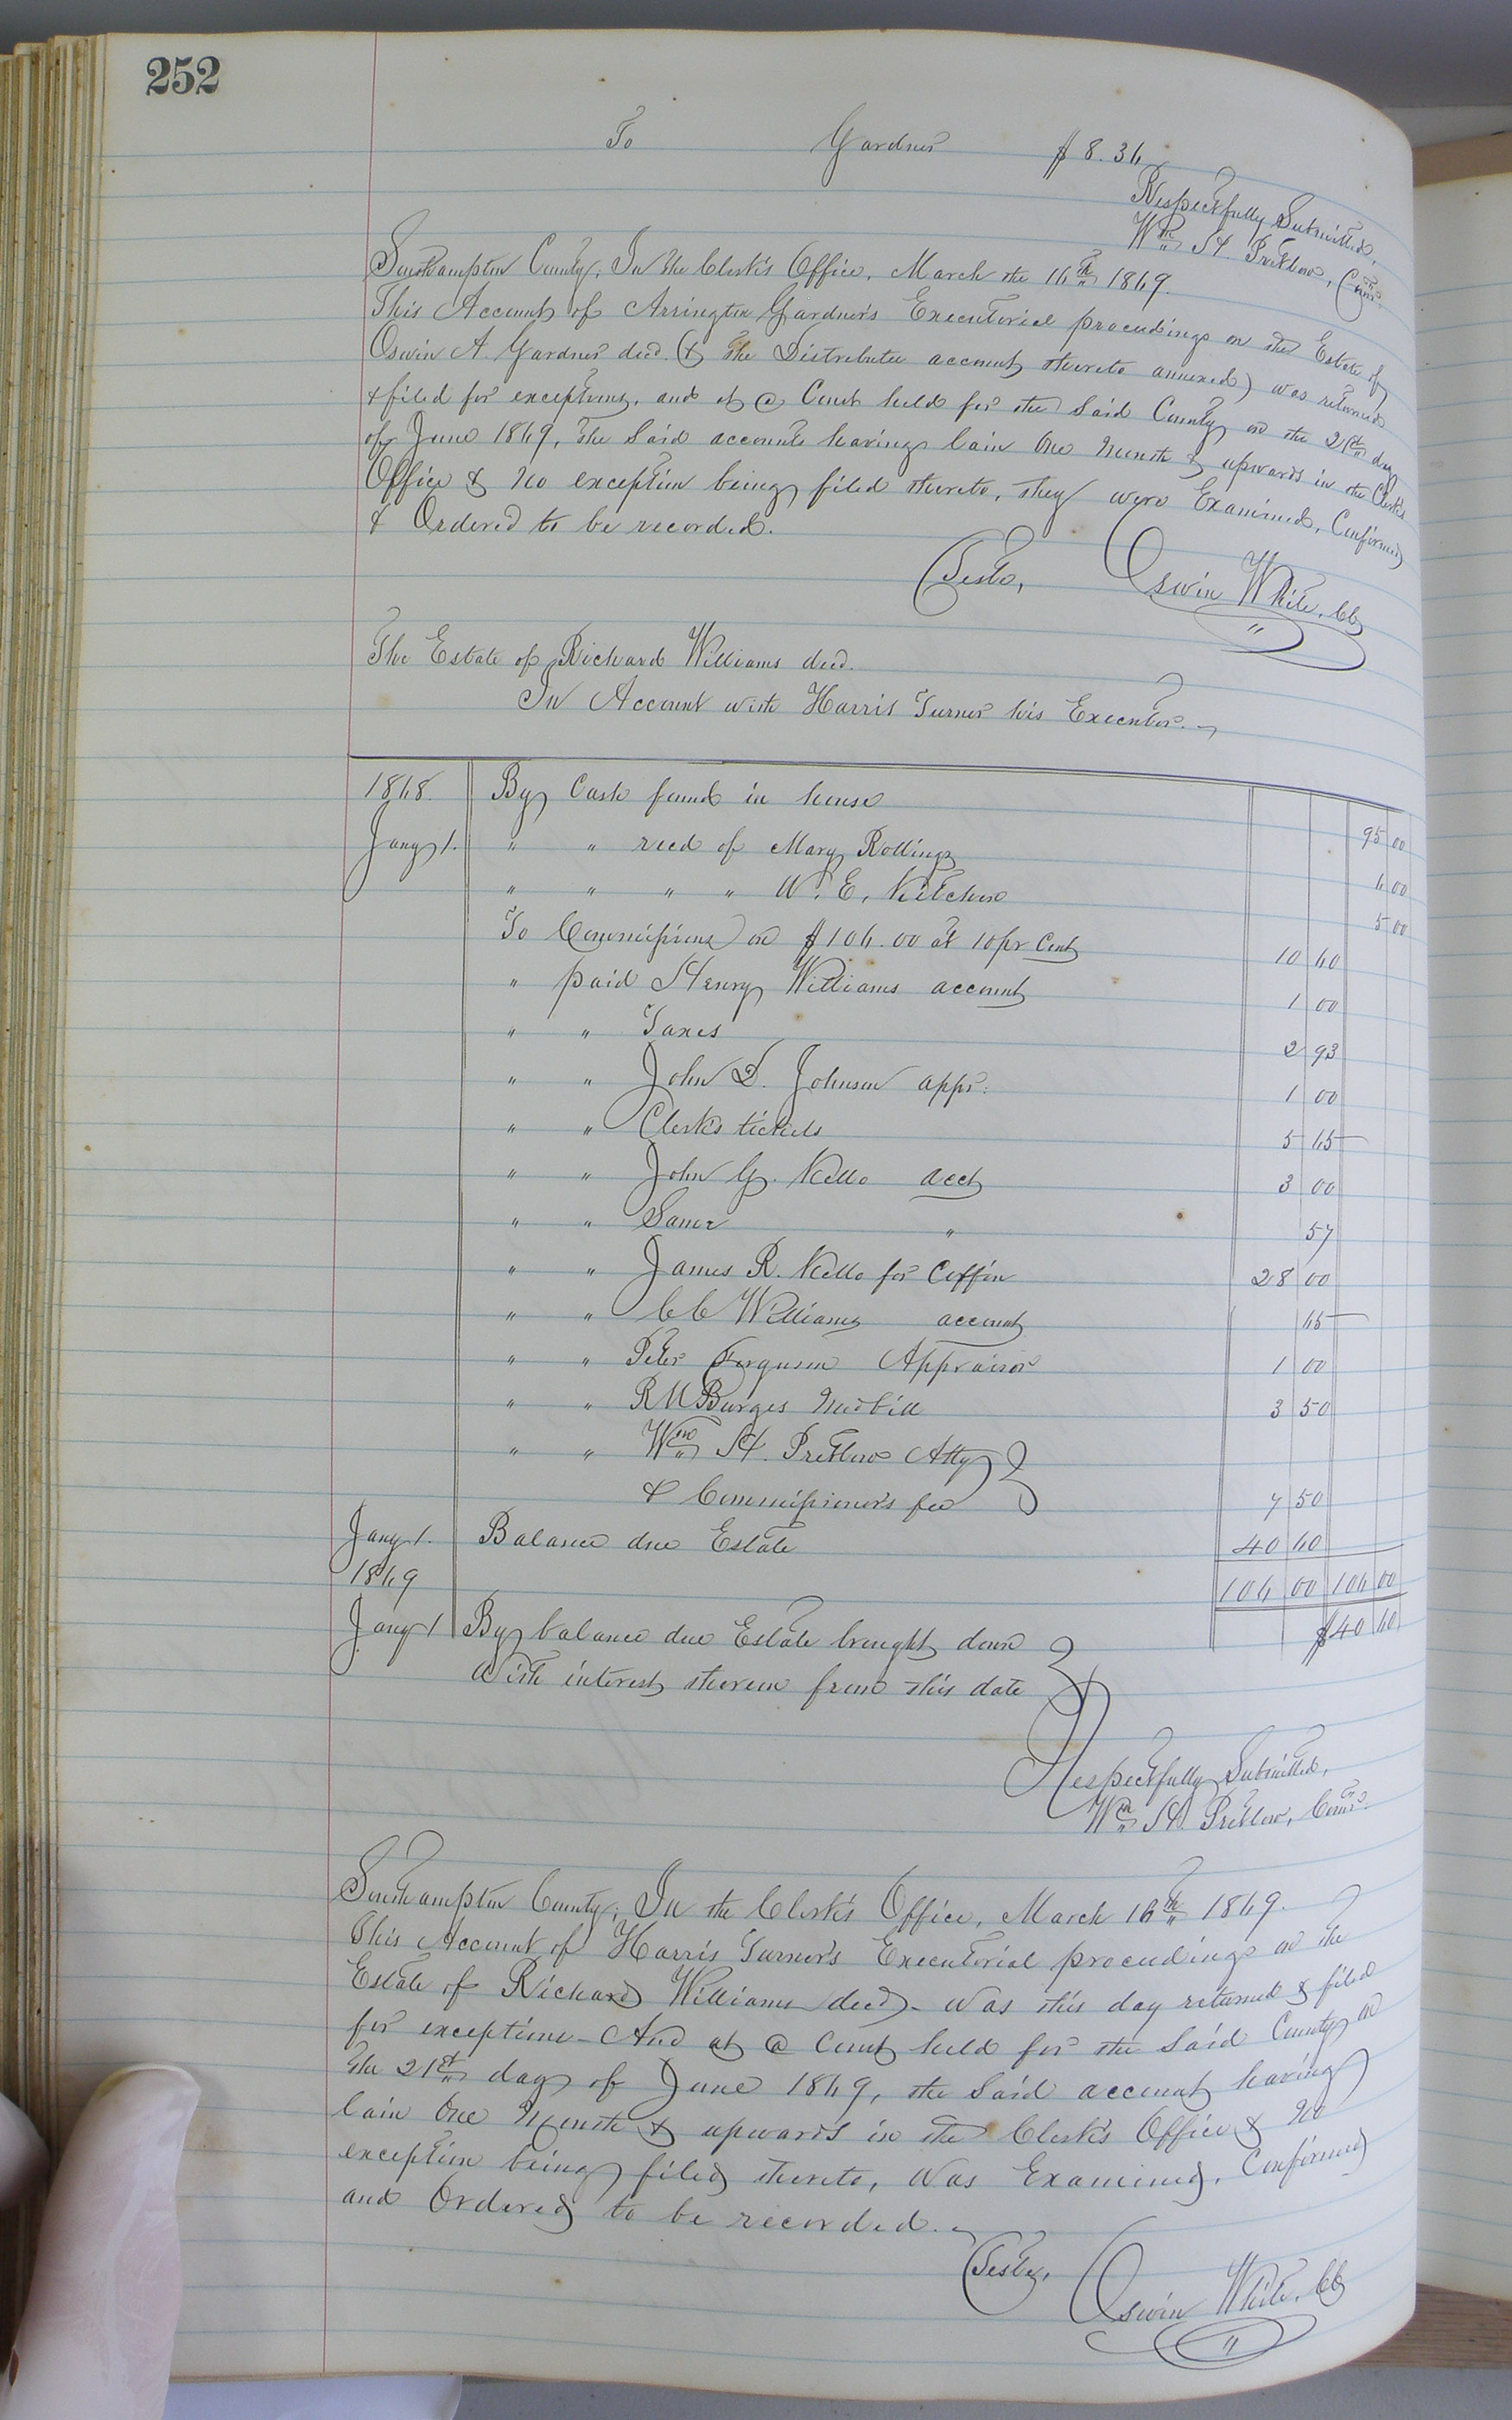 252
To Gardner $8.36
Respectfully Submitted,
Wm H. Pretlow, Comr.
Southampton County; In the Clerk's Office, March the 16th 1869.
This Account of Arrington Gardner's Executorial proceedings on the Estate of
Oswin A. Gardner decd. (& the Distributee account thereto annexed) was returned
& filed for exceptions, and at a Court held for the said County on the 21st day
of June 1869, the said accounts having lain One Month & upwards in the Clerk's
Office & no exception being filed thereto, they were Examined, Confirmed
& Ordered to be recorded.
Teste, Oswin White, CC
The Estate of Richard Williams decd.
In Account with Harris Turner his Executor.
1868. By Cash found in house 95 00
Jany 1. " " recd of Mary Rollings 6 00
" " " " W. E. Kitchen 5 00
To Commissions on $106.00 at 10 pr Cent 10 60
" paid Henry Williams account 1 00
" " Taxes 2 93
" " John D. Johnson appr. 1 00
" " Clerk's tickets 5 65
" " John G. Kello acct 3 00
" " Same " 57
" " James R. Kello for Coffin 28 00
" " CC Williams account 65
" " Peter Ferguson Appraiser 1 00
" " RM Burges Med bill 3 50
" " Wm H. Pretlow Atty
& Commissioner's fee 7 50
Jany 1. Balance due Estate 40 60
1869 106 00 106 00
Jany 1 By balance due Estate brought down $40 60
With interest thereon from this date
Respectfully Submitted,
Wm H. Pretlow, Comr.
Southampton County; In the Clerk's Office, March 16th 1869.
This Account of Harris Turner's Executorial proceedings on the
Estate of Richard Williams decd. was this day returned & filed
for exceptions - And at a Court held for the said County on
the 21st day of June 1869, the said account having
lain One Month & upwards in the Clerk's Office & no
exception being filed thereto, was Examined, Confirmed
and Ordered to be recorded.
Teste, Oswin White, CC